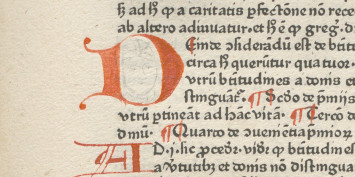 h̄ ad h̄ ꝙ a caritatis ꝑfectōne nō rece
ab altero adiuuatur·et h̄ ē ꝙ greg̛·
Einde ɔsideradū est de btit
circa h̄ querūtur quatuor·
vtrū btitudines a donis et
distinguāt᷑· ¶Scd̄o de p̄mijs
vtrū ꝑtineāt ad hāc vitā· ¶Tercō de
¶Quarto de ɔuenietia p̄mioꝝ
Ad·j·sic ꝓcedr̄·vidr̄ ꝙ btitudines
a v̓tutibꝫ et donis nō distingua